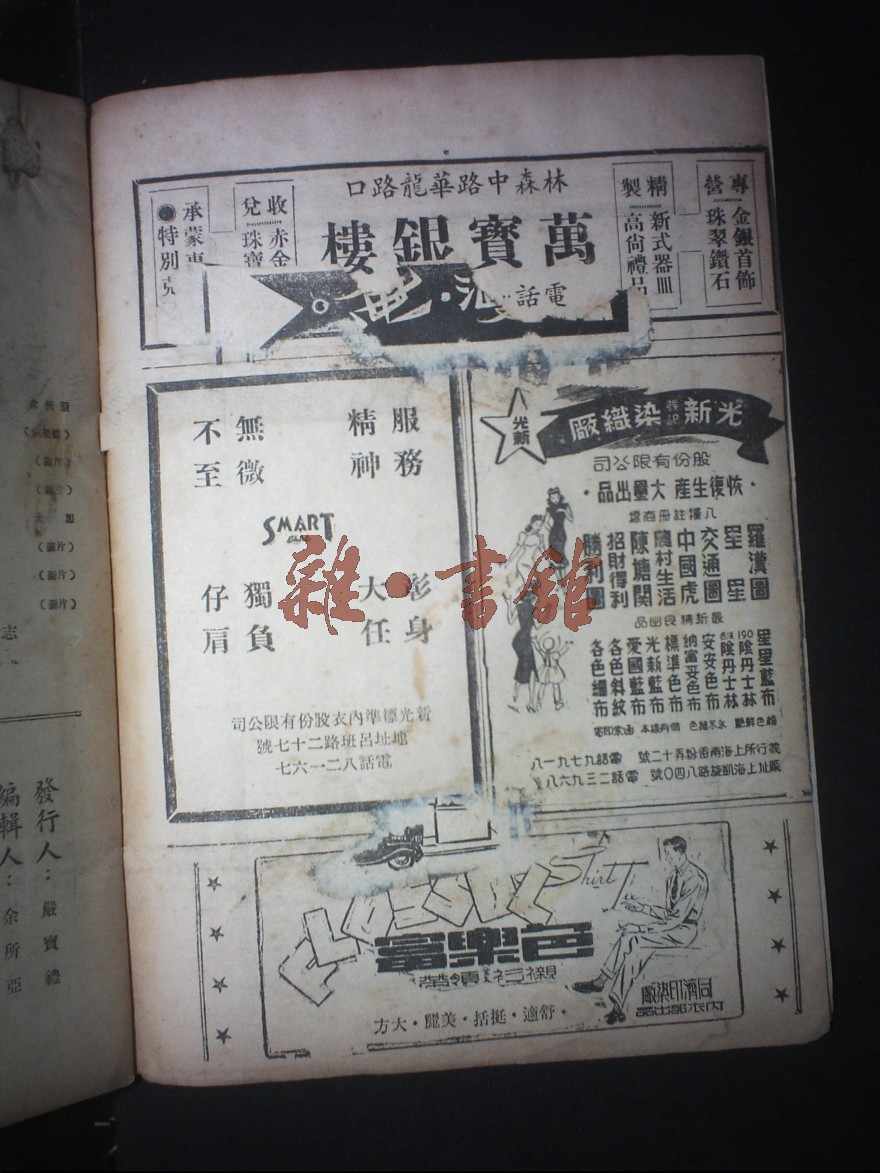 專營
金銀首飾
珠翠鑽石
精製
新式器皿
高尚禮品
林森中路華龍路口
萬寶銀樓
電話
收兌
赤金
珠寶
承蒙惠
●特別克
光新
光新染織廠
股份有限公司
恢復生產 大量出品
八種註冊商標
羅漢圖
星星
交通圖
中國虎
農村生活
陳塘關
招財得利
勝利圖
最新精良出品
星星藍布
190陰丹士林
色布陰丹士林
安安色布
納富妥色布
標準色布
光新藍布
愛國藍布
各色斜紋
各色細布
顏色鮮艷 永不褪色
發行所上海南雲粉弄十二號 電話九七九一八
廠址上海凱旋路八四〇號 電話二三九六八
服務精神
無微不至
SMART
彰身大任
獨負仔肩
新光標準內衣股份有限公司
地址呂班路二十七號
電話八二一六七
Shirt
色樂富
襯衫 領帶
舒適·挺括·美麗·大方
同濟印染廠
內衣部出品
雜·書館
(圖片)
(圖片)
(圖片)
(圖片)
志
發行人：嚴寶禮
編輯人：余所亞